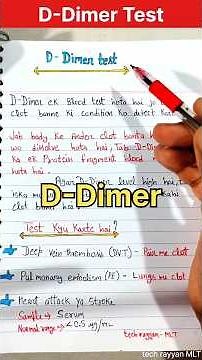 D-Dimer Test
D-Dimer test
D-Dimer ek Blood test hota hai jo
clot banne ki condition ko detect
Jab body ke Anden clot banta
wo disolve hota hai, Tab D-D
ka ek Protein fragment blood
hota hai.
Agar D-Dimer level high hai, t
iska m
clot
D-Dimer
Test Kyu Karte hai?
Deep vein thrombosis (DVT) - Pair me clot
Pulmonary embolism (PE) - Lungs me clot
Heart attack ya Stroke
Sample → Serum
Normal range → <0.5 µg/mL
tech rayyan - MLT
tech rayyan MLT